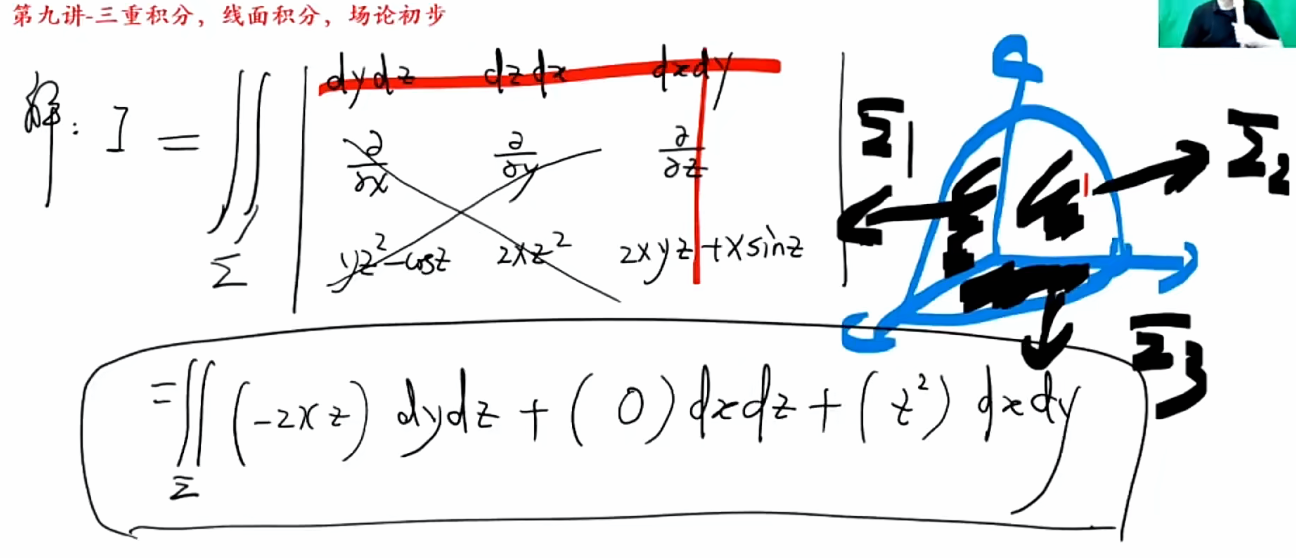 第九讲-三重积分，线面积分，场论初步
解: I = ∬_Σ | dydz dzdx dxdy
∂/∂x ∂/∂y ∂/∂z
yz²-cosz 2xz² 2xyz+xsinz |
Σ1
Σ2
Σ3
= ∬_Σ (-2xz) dydz + (0) dxdz + (z²) dxdy